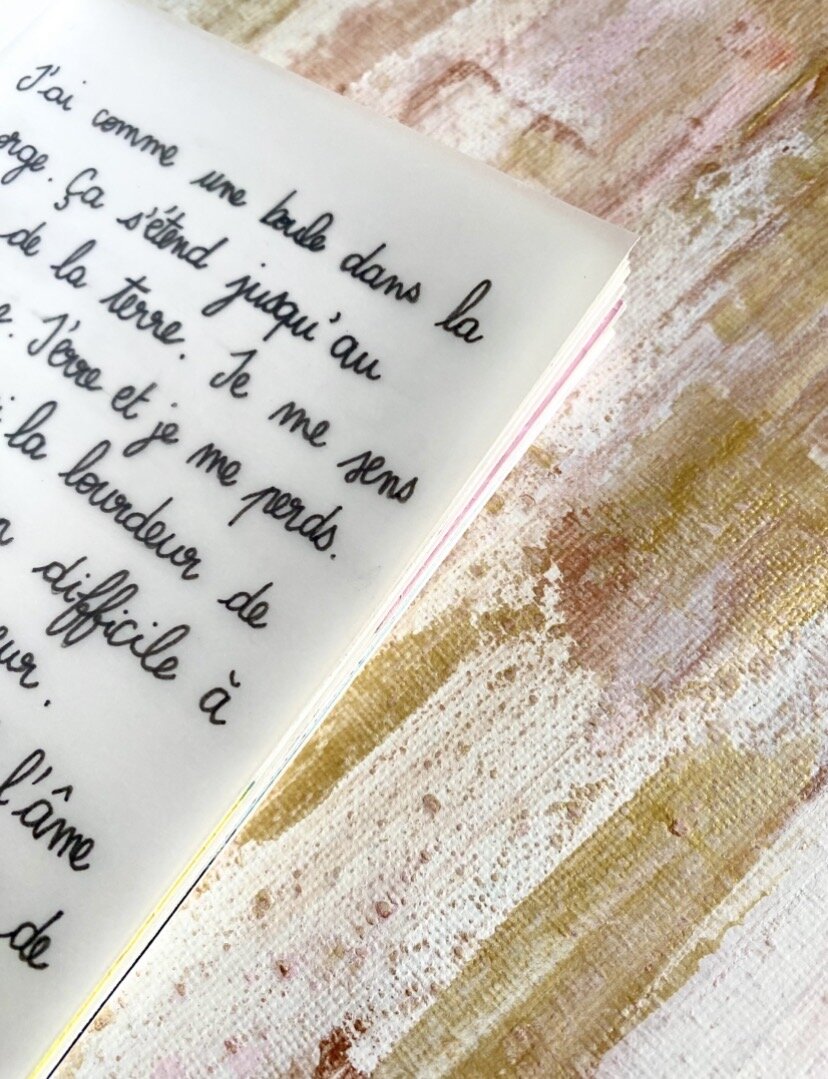 J'ai comme une boule dans la
orge. Ça s'étend jusqu'au
de la terre. Je me sens
e. J'erre et je me perds.
i la lourdeur de
difficile à
eur.
l'âme
de